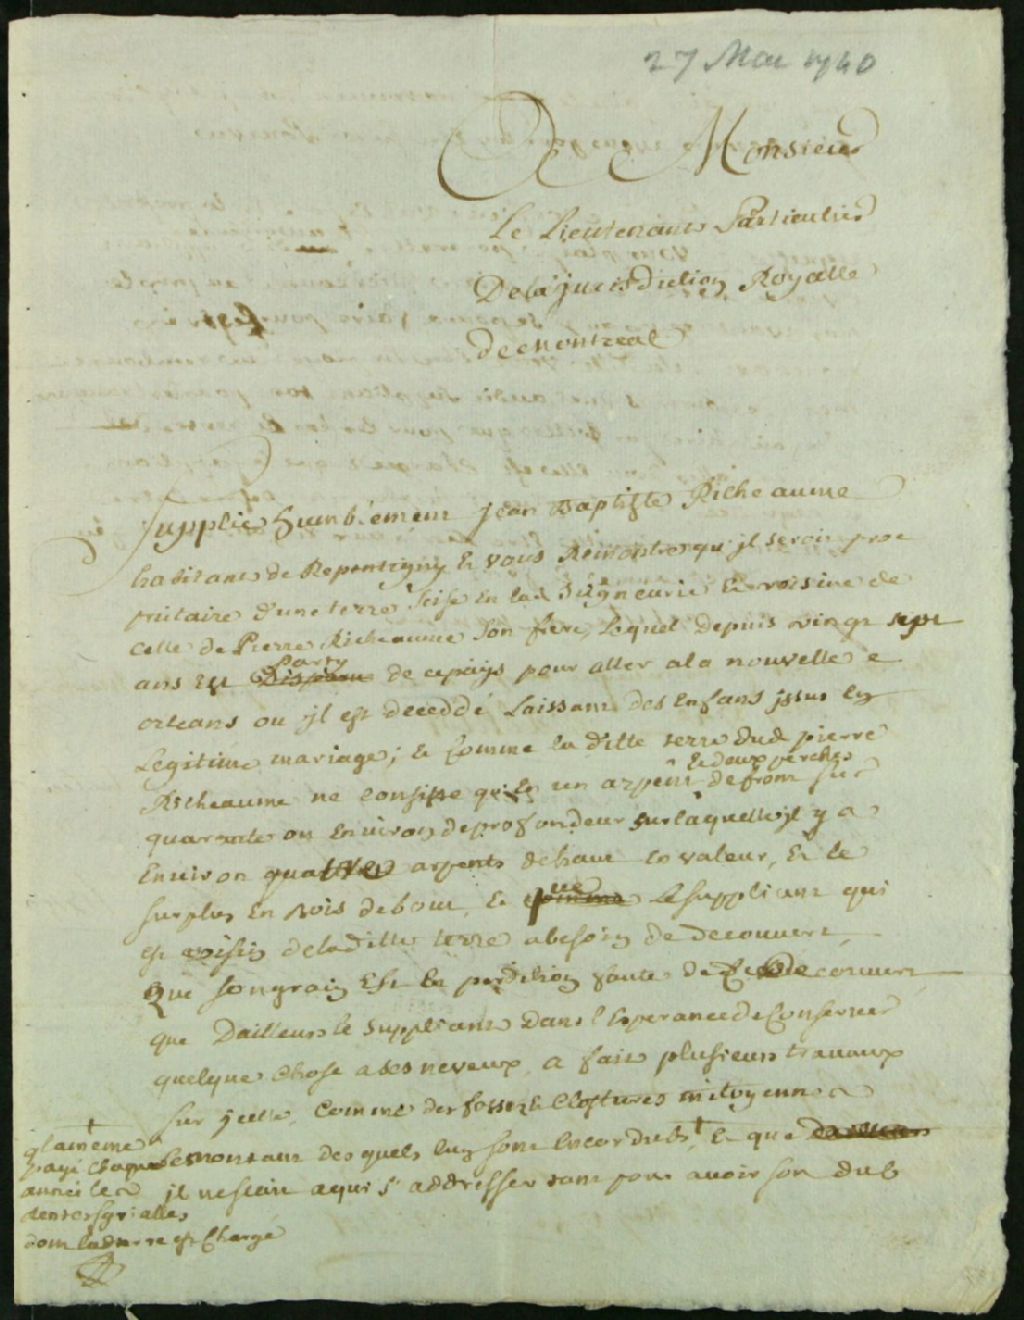 27 Mai 1740
A Monsieur
Le Lieutenant Particulier
De la jurisdiction Royalle
de Montreal
Supplie humblement jean Baptiste Richeaume
habitant de Repentigny Et vous Remontre qu'jl seroit pro
prietaire d'une terre scise En lad Seigneurie Et voisine de
celle de Pierre Richeaume son frere, lequel depuis vingt sept
ans Est party de ce pays pour aller a la nouvelle
orleans ou jl est decedé Laissant des Enfans jssus en
Legitime mariage; Et Comme la ditte terre dud pierre
Richeaume ne consiste qu'En un arpent Et deux perches de front sur
quarante ou Environ de profondeur sur laquelle jl y a
Environ quattre arpents de haut En valeur, Et le
surplus En Bois debout, Et que Le suppliant qui
est voisin de la ditte terre a besoin de decouvert
Que son grain Est En perdition faute de decouvert
que Dailleurs le suppliant dans l'Esperance de Conserver
quelque chose a ses neveux a fait plusieurs travaux
sur jcelle, Comme des fossez & Clostures mitoyenne
Le montant des quels luy sont Encor dubs, + Et que
jl ne scait a qui s'addresser tant pour avoir son dub
+
a paye chaque
année les
rentes sgrialles
dont la terre est Chargé